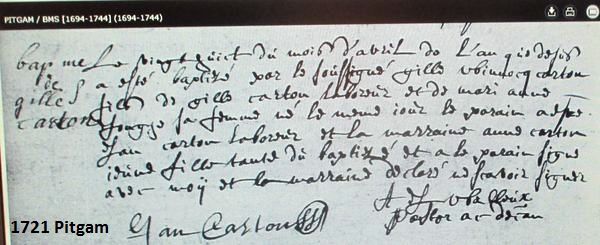 PITGAM / BMS [1694-1744] (1694-1744)
bapme Le vingt quict du mois d'avril de L'an que desus
de a esté baptizé par le soussigné gille carton
gilles fils de gille carton laboreur et de mari anne
carton sa femme né le meme iour le parain a esté
Jean carton laboreur et la marraine anne carton
ieune fille tante du baptizé et a le parain signé
avec moÿ et la marraine declaré ne scavoir signer
Jan Carton
pastor ac decan
1721 Pitgam